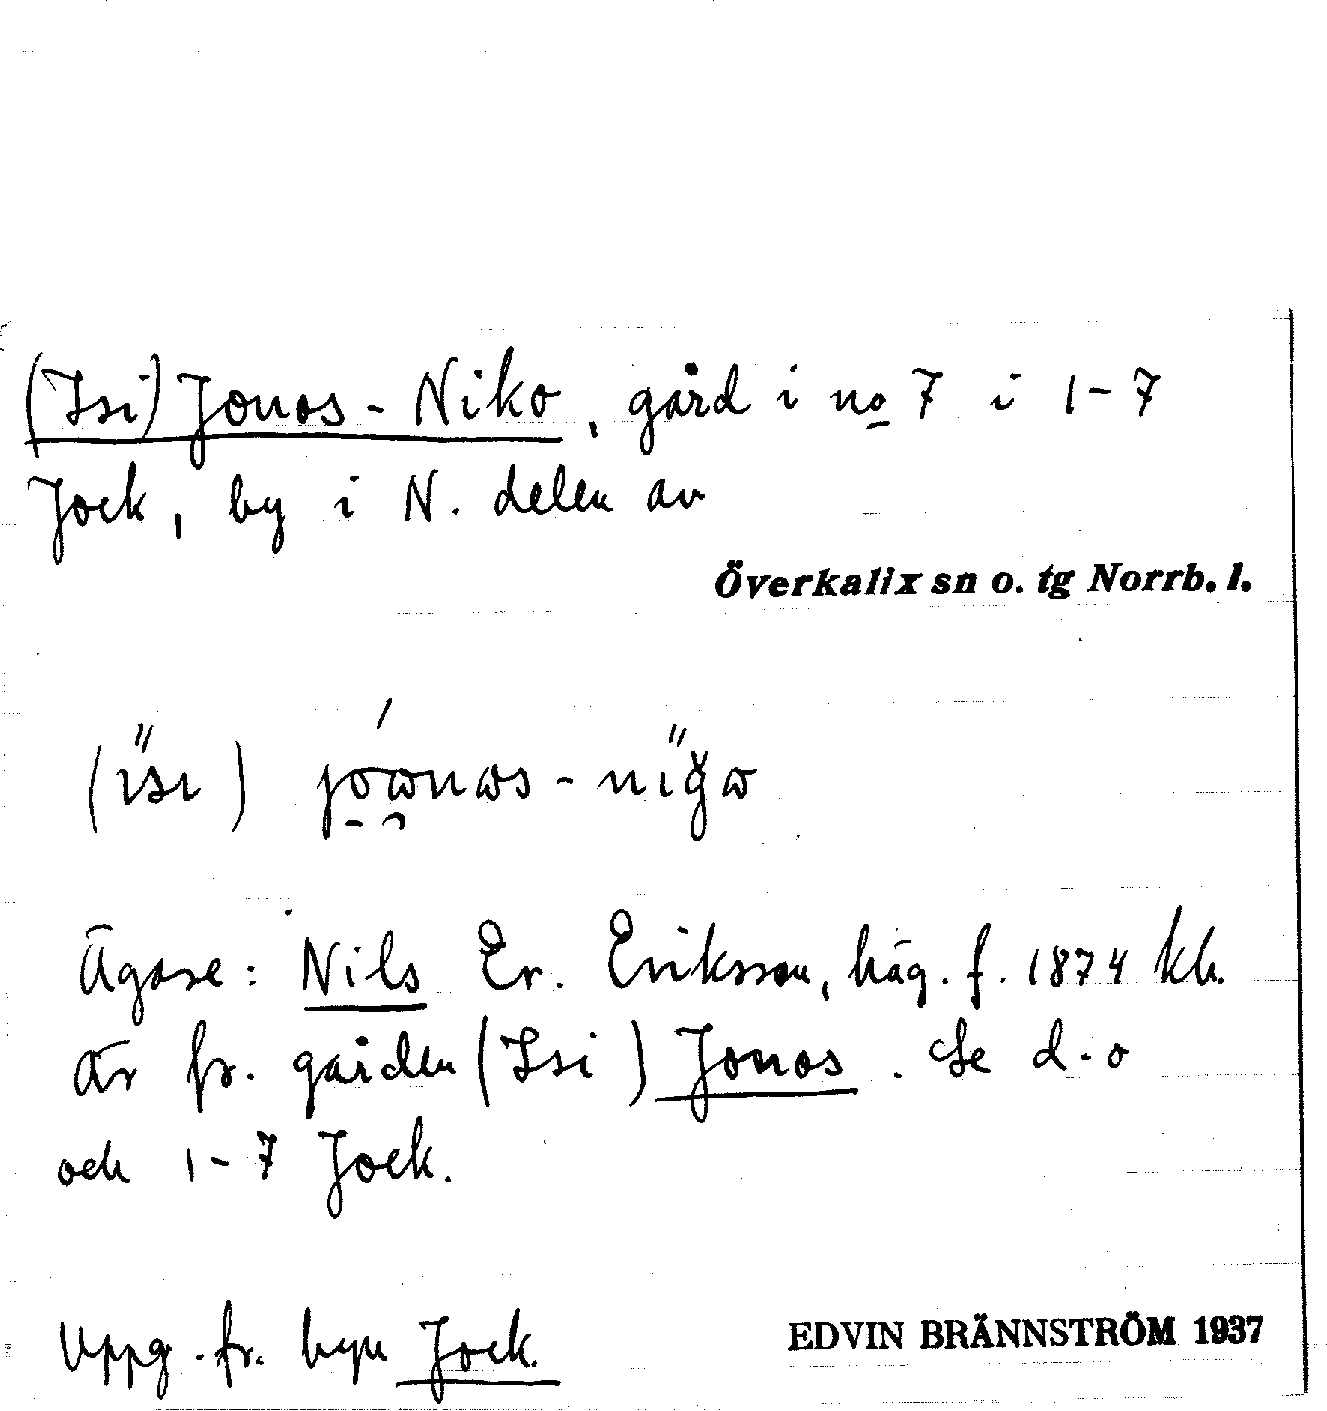 (Isi) Jonas-Niko, gård i no 7 i 1-7
Jock, by i N. delen av
Överkalix sn o. tg Norrb. l.
Ägare: Nils Er. Eriksson, häg. f. 1874 kh.
är fr. gården (Isi) Jonas. Se d-o
och 1-7 Jock.
Uppg. fr. byn Jock.
EDVIN BRÄNNSTRÖM 1937